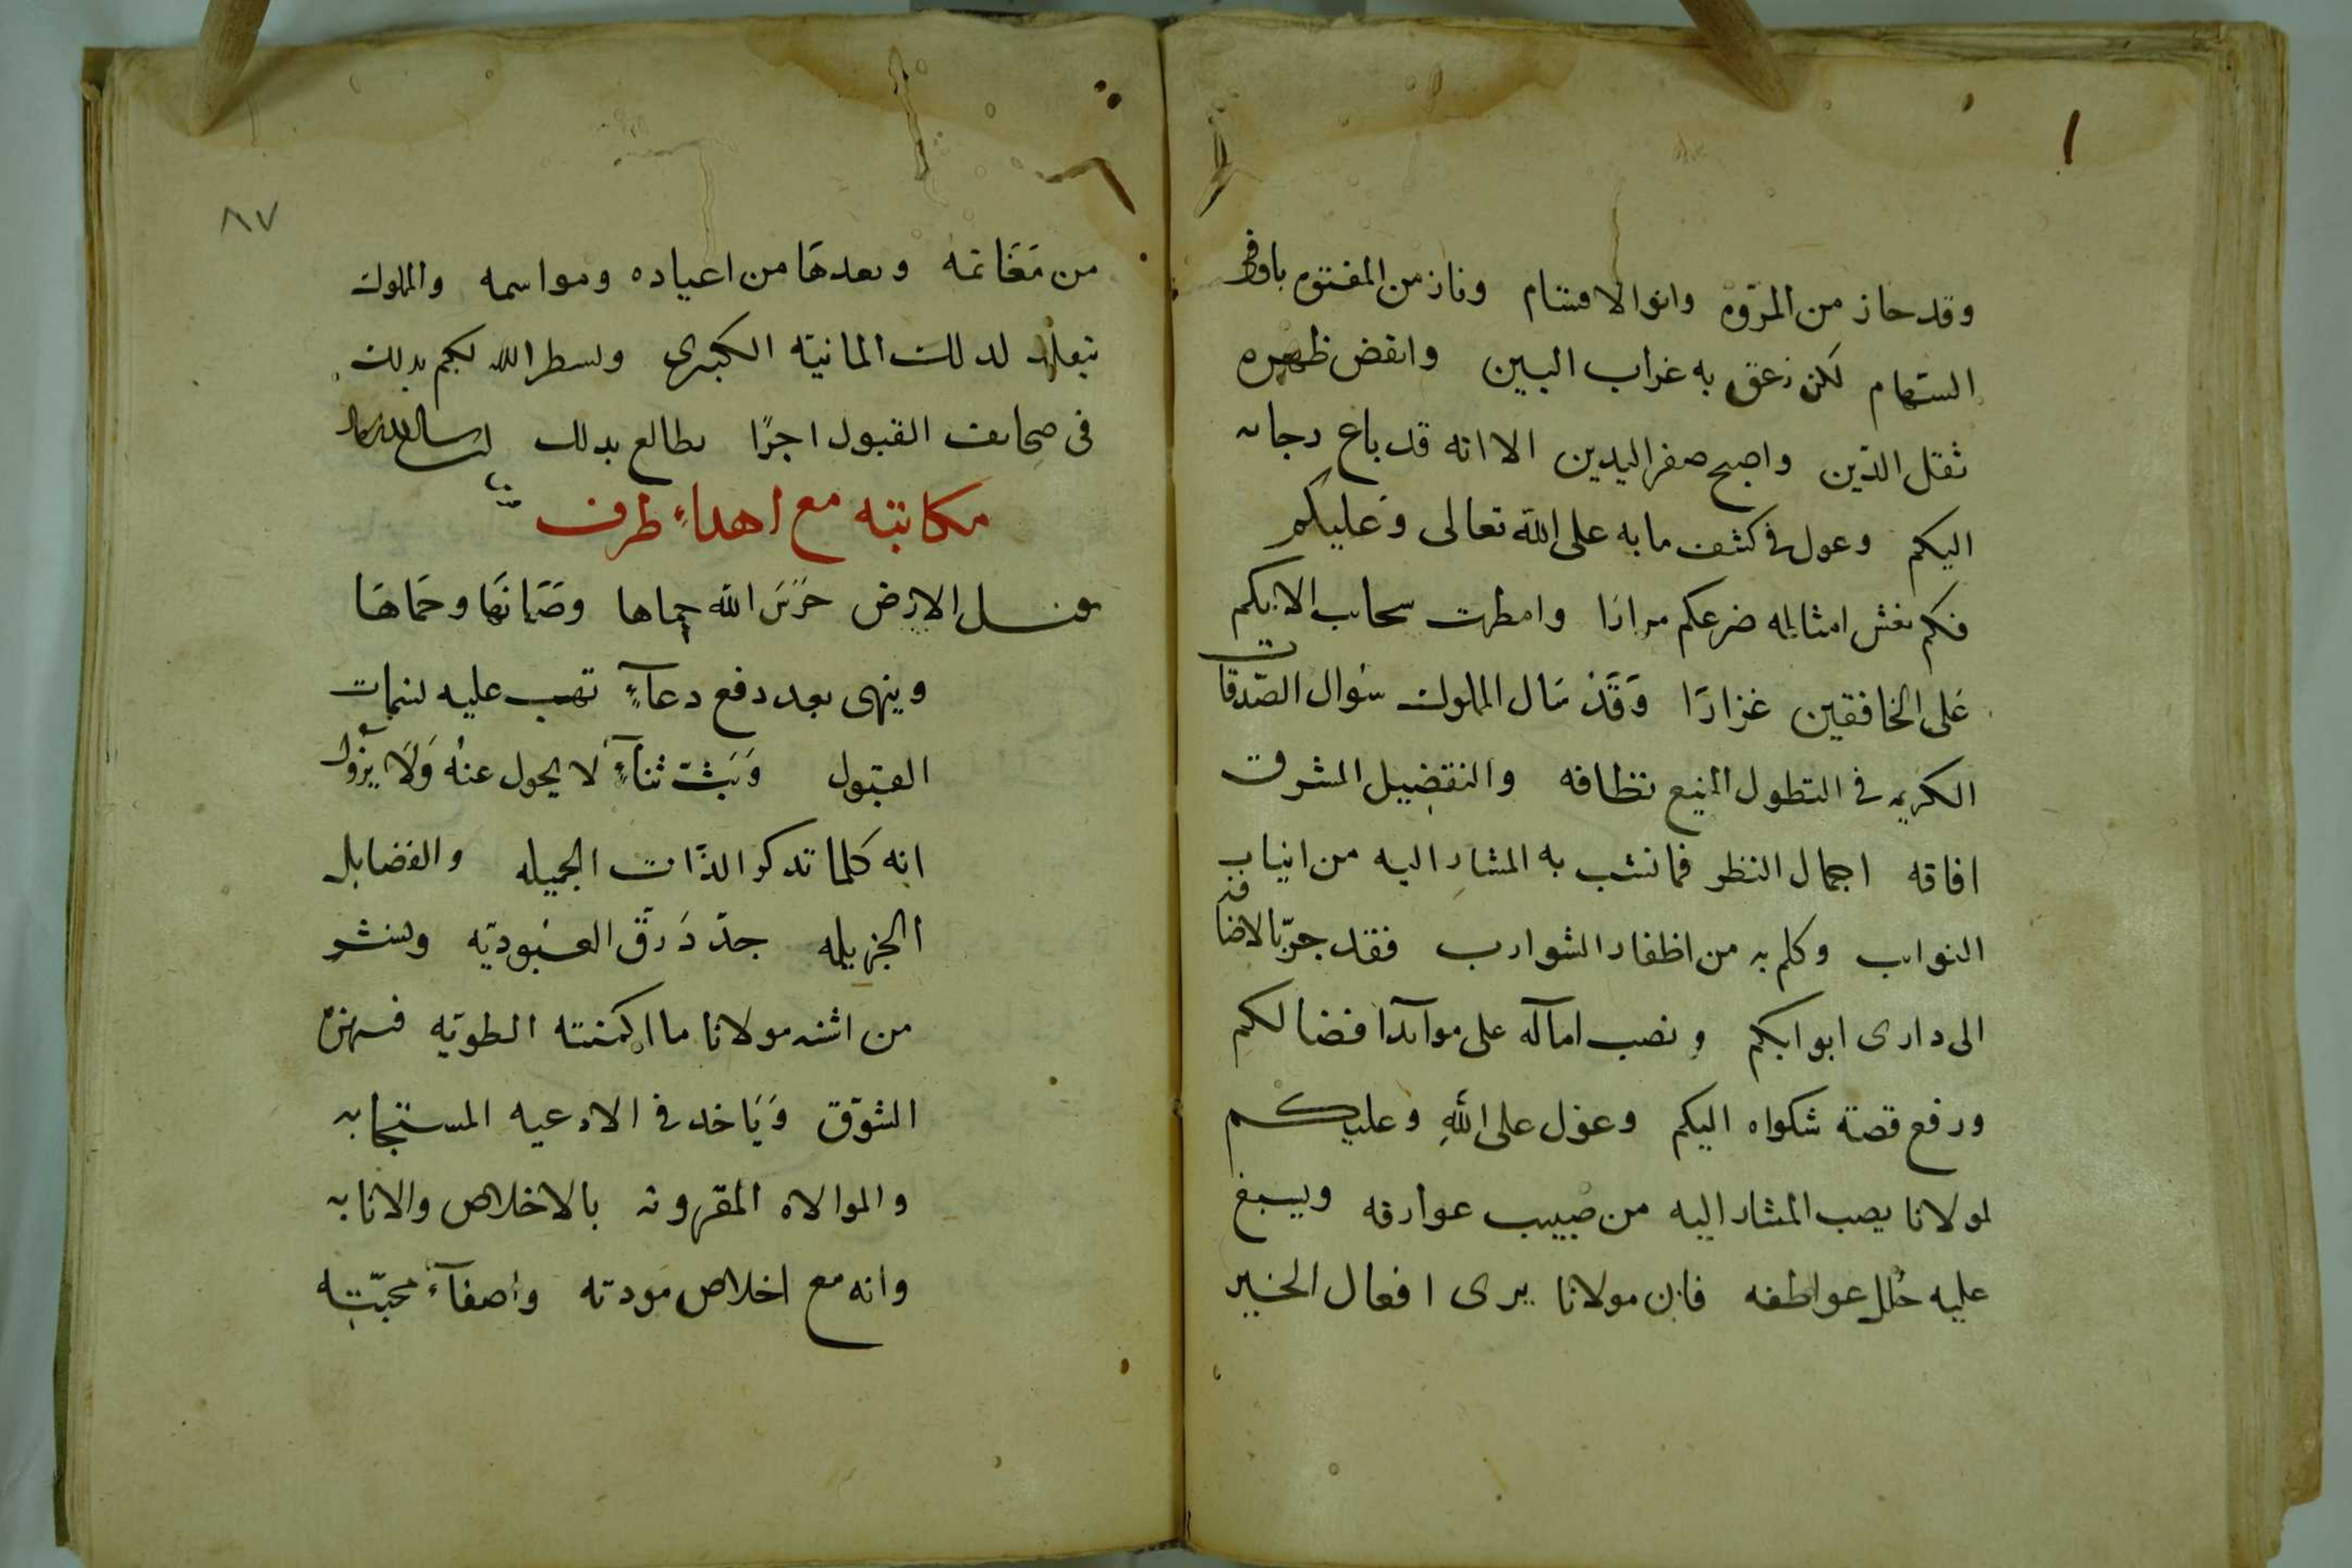 وقد حاز من المروه وانو الاقتسام وفاز من الفتوه باوفر
السهام لكن زعق به غراب البين وانقض ظهره
ثقل الدين واصبح صفر اليدين الا انه قد باع رجاه
اليكم وعول في كشف ما به على الله تعالى وعليكم
فكم نعش امثاله ضرعكم مرارا وامطرت سحايب الايكم
على الخافقين غزارا وقد سال المملوك سوال الصدقات
الكريمه في التطول المنيع نطاقه والتفضيل المشرق
افاقه اجمال النظر فما نشب به المشار اليه من انياب
النوايب وكلم به من اظفار الشوارب فقد جر بالاضافة
الى دارى ابوابكم ونصب اماله على موآئد افضالكم
ورفع قصة شكواه اليكم وعول على الله وعليكم
لمولانا يصب المشار اليه من صبيب عوارفه ويسبغ
عليه حلل عواطفه فان مولانا يرى افعال الخير
٨٧
من مغانمه وبعدها من اعياده ومواسمه والمملوك
بتقلد لذلك المانية الكبرى ويسطر الله لكم بذلك
فى صحايف القبول اجرا يطالع بذلك
مكاتبته مع اهداء طرف
يقبل الارض حرس الله حماها وصانها وحماها
وينهى بعد رفع دعآء تهب عليه نسمات
القبول وبث ثنآء لا يحول عنه ولا يزول
انه كلما تذكر الذات الجميله والفضايل
الجزيله جدد رق العبوديه وينشر
من اثنه مولانا ما اكمنته الطويه فيهزه
الشوق وياخذ في الادعيه المستجابه
والموالاه المقرونه بالاخلاص والانابه
وانه مع اخلاص مودته واصفآء محبته